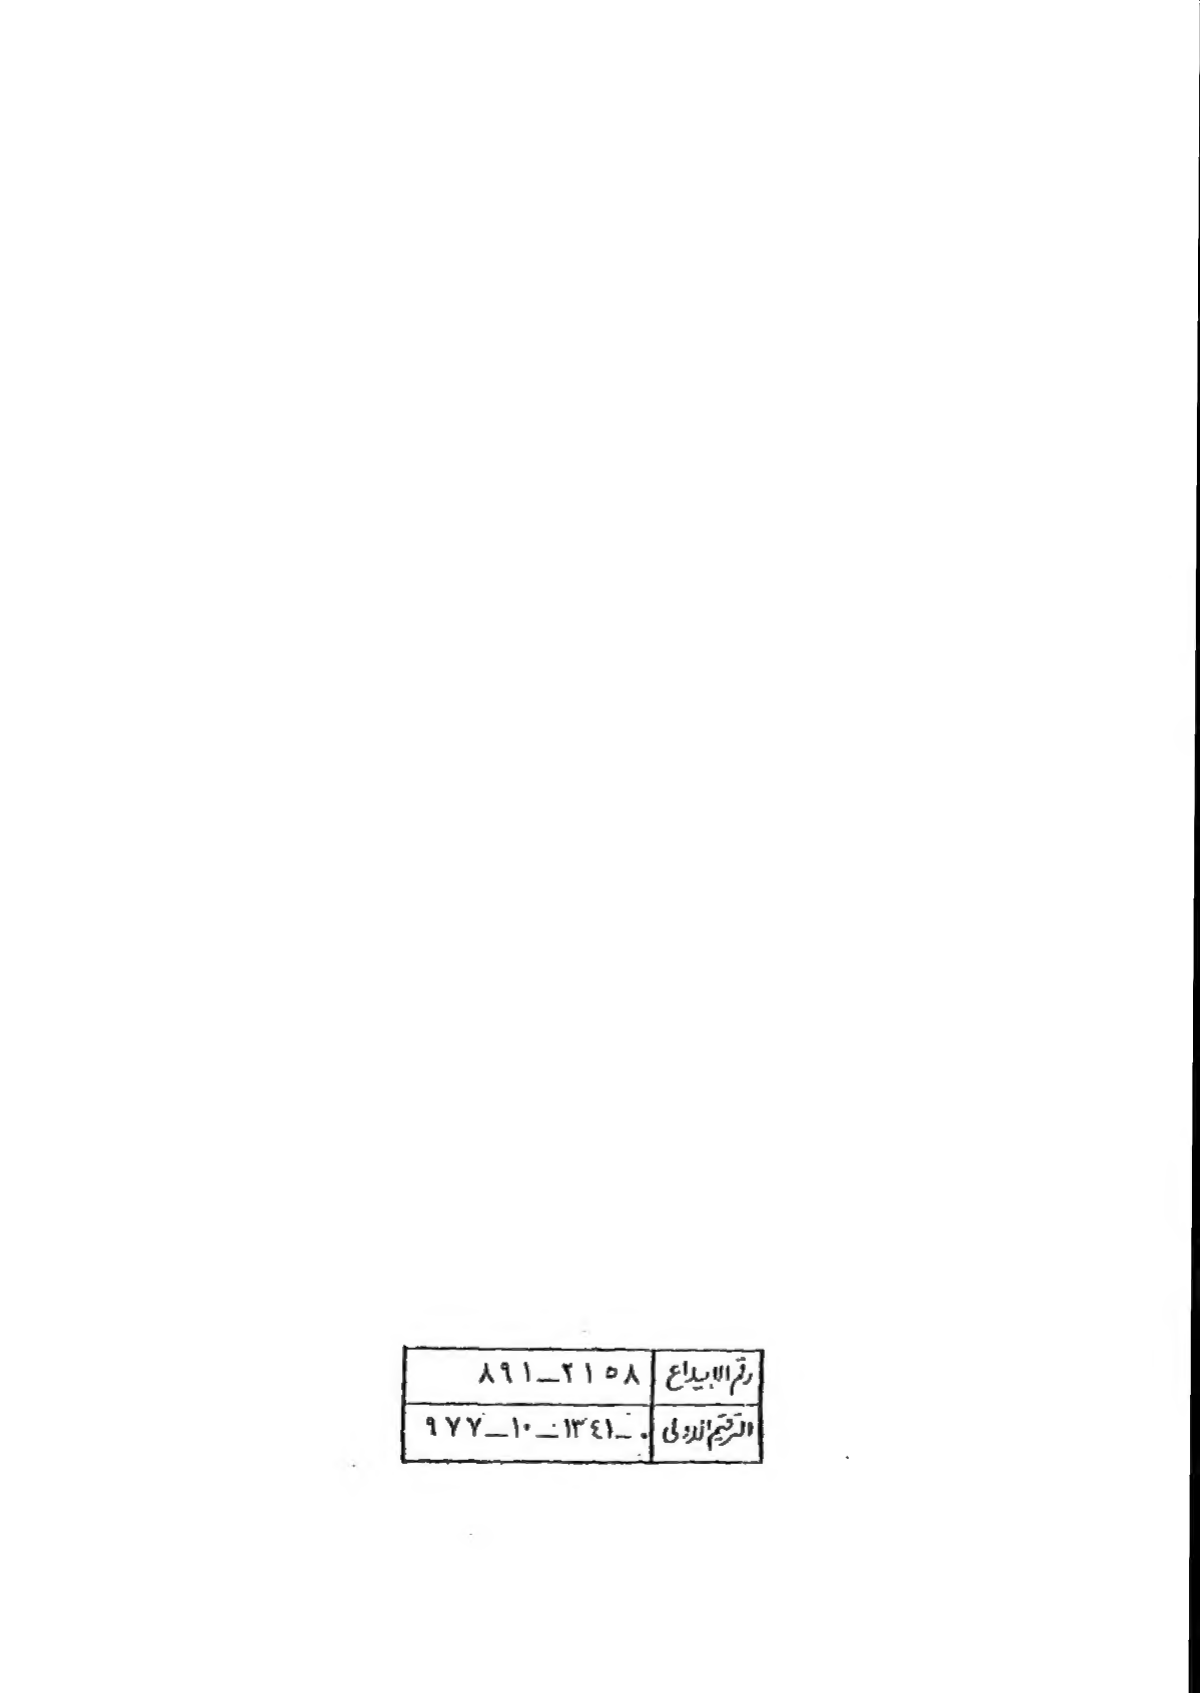 رقم الايداع ٨٩١_٢١٥٨
الترقيم الدولى ٩٧٧_١٠_١٣٤١_٠